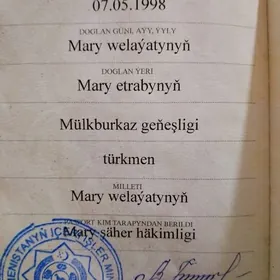 07.05.1998
DOGLAN GÜNI, AÝY, ÝYLY
Mary welaýatynyň
DOGLAN ÝERI
Mary etrabynyň
Mülkburkaz geňeşligi
türkmen
MILLETI
Mary welaýatynyň
PASPORT KIM TARAPYNDAN BERILDI
Mary säher häkimligi